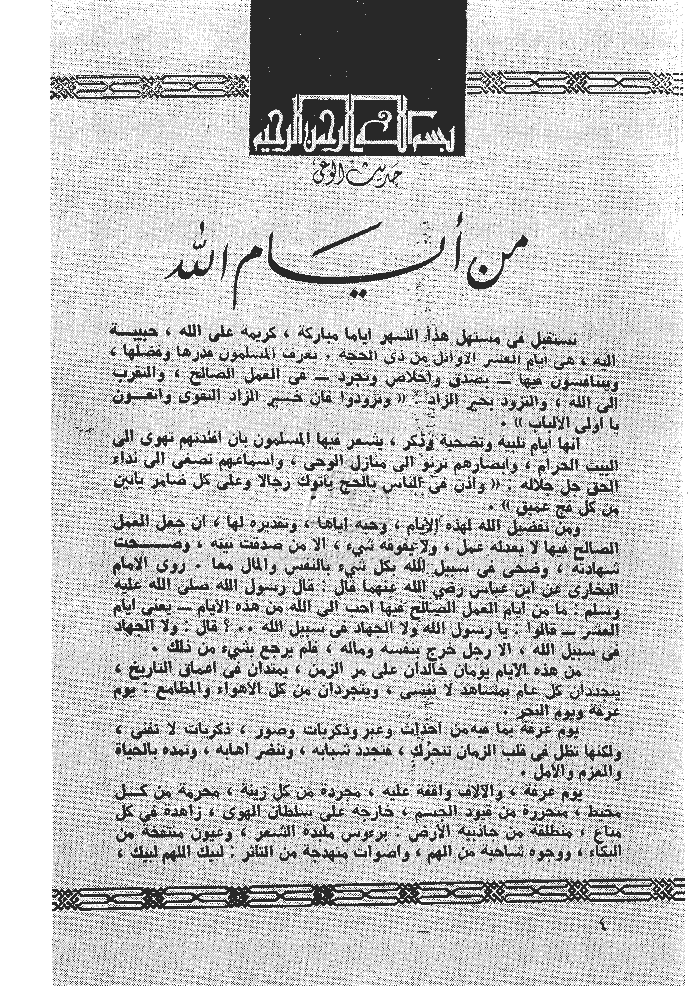 بسم الله الرحمن الرحيم
حديث الوعي
من أيام الله
نستقبل فى مستهل هذا الشهر اياما مباركة ، كريمة على الله ، حبيبة
اليه ، هى أيام العشر الاوائل من ذى الحجة . يعرف المسلمون قدرها وفضلها ،
ويتنافسون فيها ــ بصدق واخلاص وتجرد ــ فى العمل الصالح ، والتقرب
الى الله ، والتزود بخير الزاد . (( وتزودوا فان خير الزاد التقوى واتقون
يا أولى الألباب )) .
انها أيام تلبية وتضحية وذكر ، يشعر فيها المسلمون بان افئدتهم تهوى الى
البيت الحرام ، وابصارهم ترنو الى منازل الوحى ، واسماعهم تصغى الى نداء
الحق جل جلاله . (( وأذن فى الناس بالحج يأتوك رجالا وعلى كل ضامر يأتين
من كل فج عميق )) .
ومن تفضيل الله لهذه الأيام ، وحبه اياها ، وتقديره لها ، ان جعل العمل
الصالح فيها لا يعدله عمل ، ولا يفوقه شىء ، الا من صدقت نيته ، وصحت
شهادته ، وضحى فى سبيل الله بكل شىء بالنفس والمال معا . روى الامام
البخارى عن ابن عباس رضي الله عنهما قال : قال رسول الله صلى الله عليه
وسلم : ما من ايام العمل الصالح فيها احب الى الله من هذه الايام ــ يعنى ايام
العشر ــ قالوا : يا رسول الله ولا الجهاد فى سبيل الله . . ؟ قال : ولا الجهاد
فى سبيل الله ، الا رجل خرج بنفسه وماله ، فلم يرجع بشىء من ذلك .
من هذه الايام يومان خالدان على مر الزمن ، يمتدان فى اعماق التاريخ ،
يتجددان كل عام بمشاهد لا تنسى ، ويتجردان من كل الأهواء والمطامع : يوم
عرفة ويوم النحر .
يوم عرفة بما فيه من احداث وعبر وذكريات وصور ، ذكريات لا تفنى ،
ولكنها تظل فى قلب الزمان تتحرك ، فتجدد شبابه ، وتنضر اهابه ، وتمده بالحياة
والعزم والأمل .
يوم عرفة ، والآلاف واقفة عليه ، مجردة من كل زينة ، محرمة من كل
محيط ، متحررة من قيود الجسم ، خارجة على سلطان الهوى ، زاهدة فى كل
متاع ، منطلقة من جاذبية الأرض : برءوس ملبدة الشعر ، وعيون منتفخة من
البكاء ، ووجوه شاحبة من الهم ، واصوات متهدجة من التأثر : لبيك اللهم لبيك ،
٤